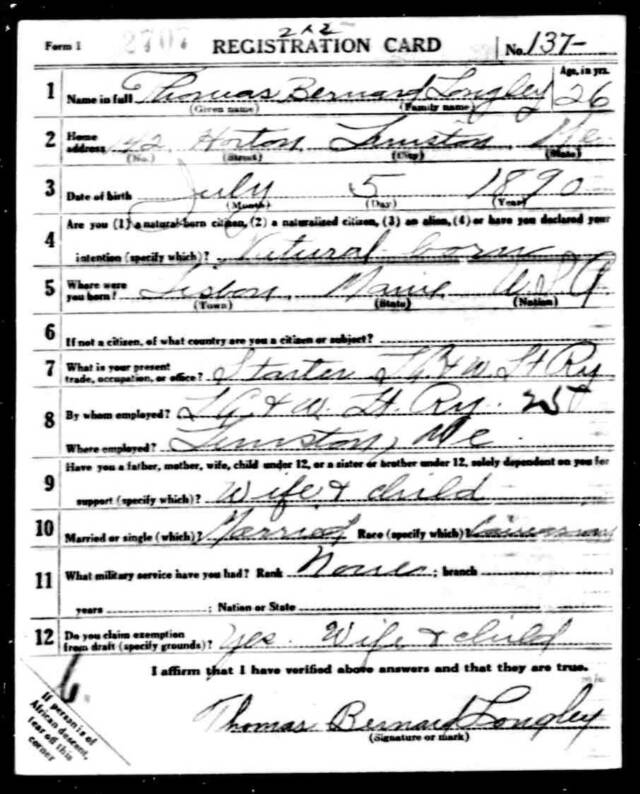 Form 1 2707 212 REGISTRATION CARD No. 137-
1 Name in full Thomas Bernard Longley Age, in yrs. 26
(Given name) (Family name)
2 Home address 42 Horton Lewiston Me.
(No.) (Street) (City) (State)
3 Date of birth July 5 1890
(Month) (Day) (Year)
4 Are you (1) a natural-born citizen, (2) a naturalized citizen, (3) an alien, (4) or have you declared your
intention (specify which)? Natural born
5 Where were you born? Lisbon Maine U S A
(Town) (State) (Nation)
6 If not a citizen, of what country are you a citizen or subject?
7 What is your present trade, occupation, or office? Starter L A & W St Ry
8 By whom employed? L A & W. St. Ry.
Where employed? Lewiston, Me.
9 Have you a father, mother, wife, child under 12, or a sister or brother under 12, solely dependent on you for
support (specify which)? Wife & child
10 Married or single (which)? Married Race (specify which)? Caucasian
11 What military service have you had? Rank None ; branch
years ; Nation or State
12 Do you claim exemption from draft (specify grounds)? Yes. Wife & child
I affirm that I have verified above answers and that they are true.
If person is of
African descent,
tear off this
corner
Thomas Bernard Longley
(Signature or mark)